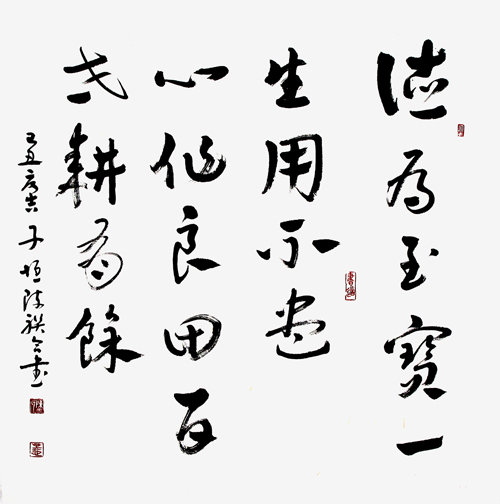 德為至寶一
生用不盡
心作良田百
世耕有餘
己丑子恒书